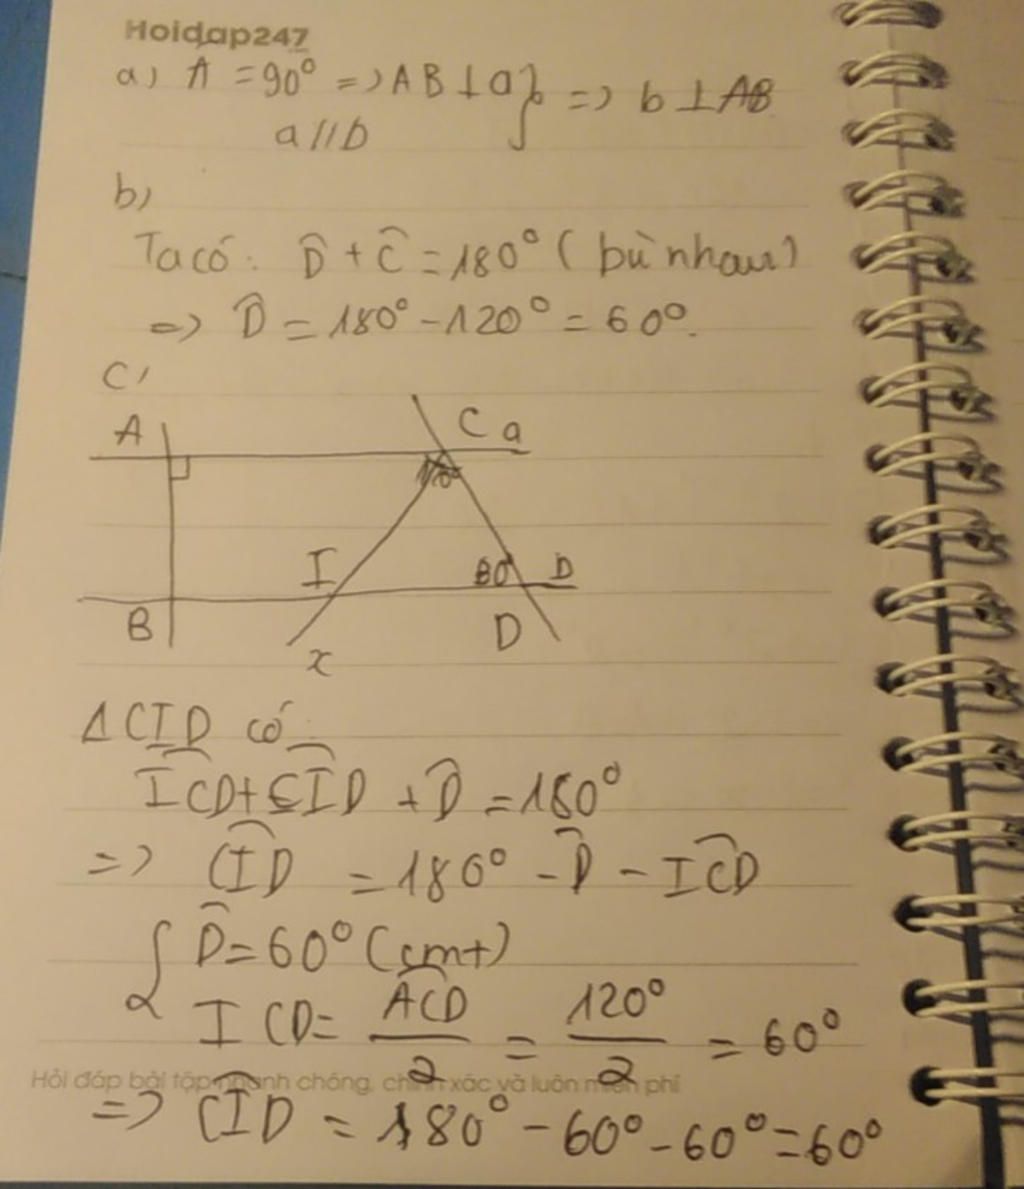 Hoidap247
a) Â = 90° => AB ⊥ a } => b ⊥ AB
a // b
b)
Ta có: D̂ + Ĉ = 180° (bù nhau)
=> D̂ = 180° - 120° = 60°.
c)
A C a
I 60° b
B D
x
Δ CID có
ICD + CID + D̂ = 180°
=> CID = 180° - D̂ - ICD
{ D̂ = 60° (cmt)
ICD = ACD/2 = 120°/2 = 60°
Hỏi đáp bài tập nhanh chóng, chính xác và luôn miễn phí
=> CID = 180° - 60° - 60° = 60°